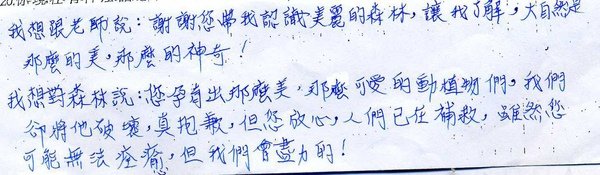 我想跟老師說：謝謝您帶我認識美麗的森林，讓我了解，大自然是
那麼的美，那麼的神奇！
我想對森林說：您孕育出那麼美，那麼可愛的動植物們，我們
卻將他破壞，真抱歉，但您放心，人們已在補救，雖然您
可能無法痊癒，但我們會盡力的！